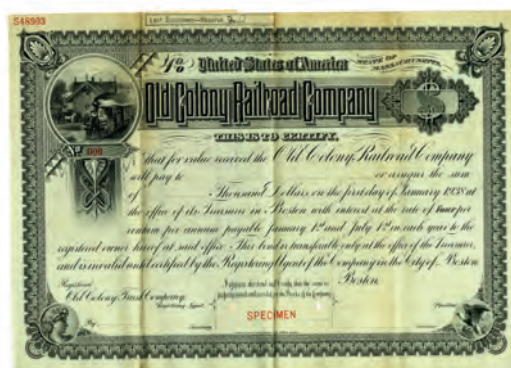 S48903
4% United States of America STATE OF MASSACHUSETTS
Old Colony Railroad Company
$
THIS IS TO CERTIFY,
No 000
that for value received the Old Colony Railroad Company
will pay to or assigns the sum
of Thousand Dollars on the first day of January 1938 at
the office of its Treasurer in Boston with interest at the rate of Four per
centum per annum payable January 1st and July 1st in each year to the
registered owner hereof at said office. This bond is transferable only at the office of the Treasurer,
and is invalid until certified by the Registering Agent of the Company in the City of Boston
Registered Boston
Old Colony Trust Company
Registering Agent.
By
SPECIMEN